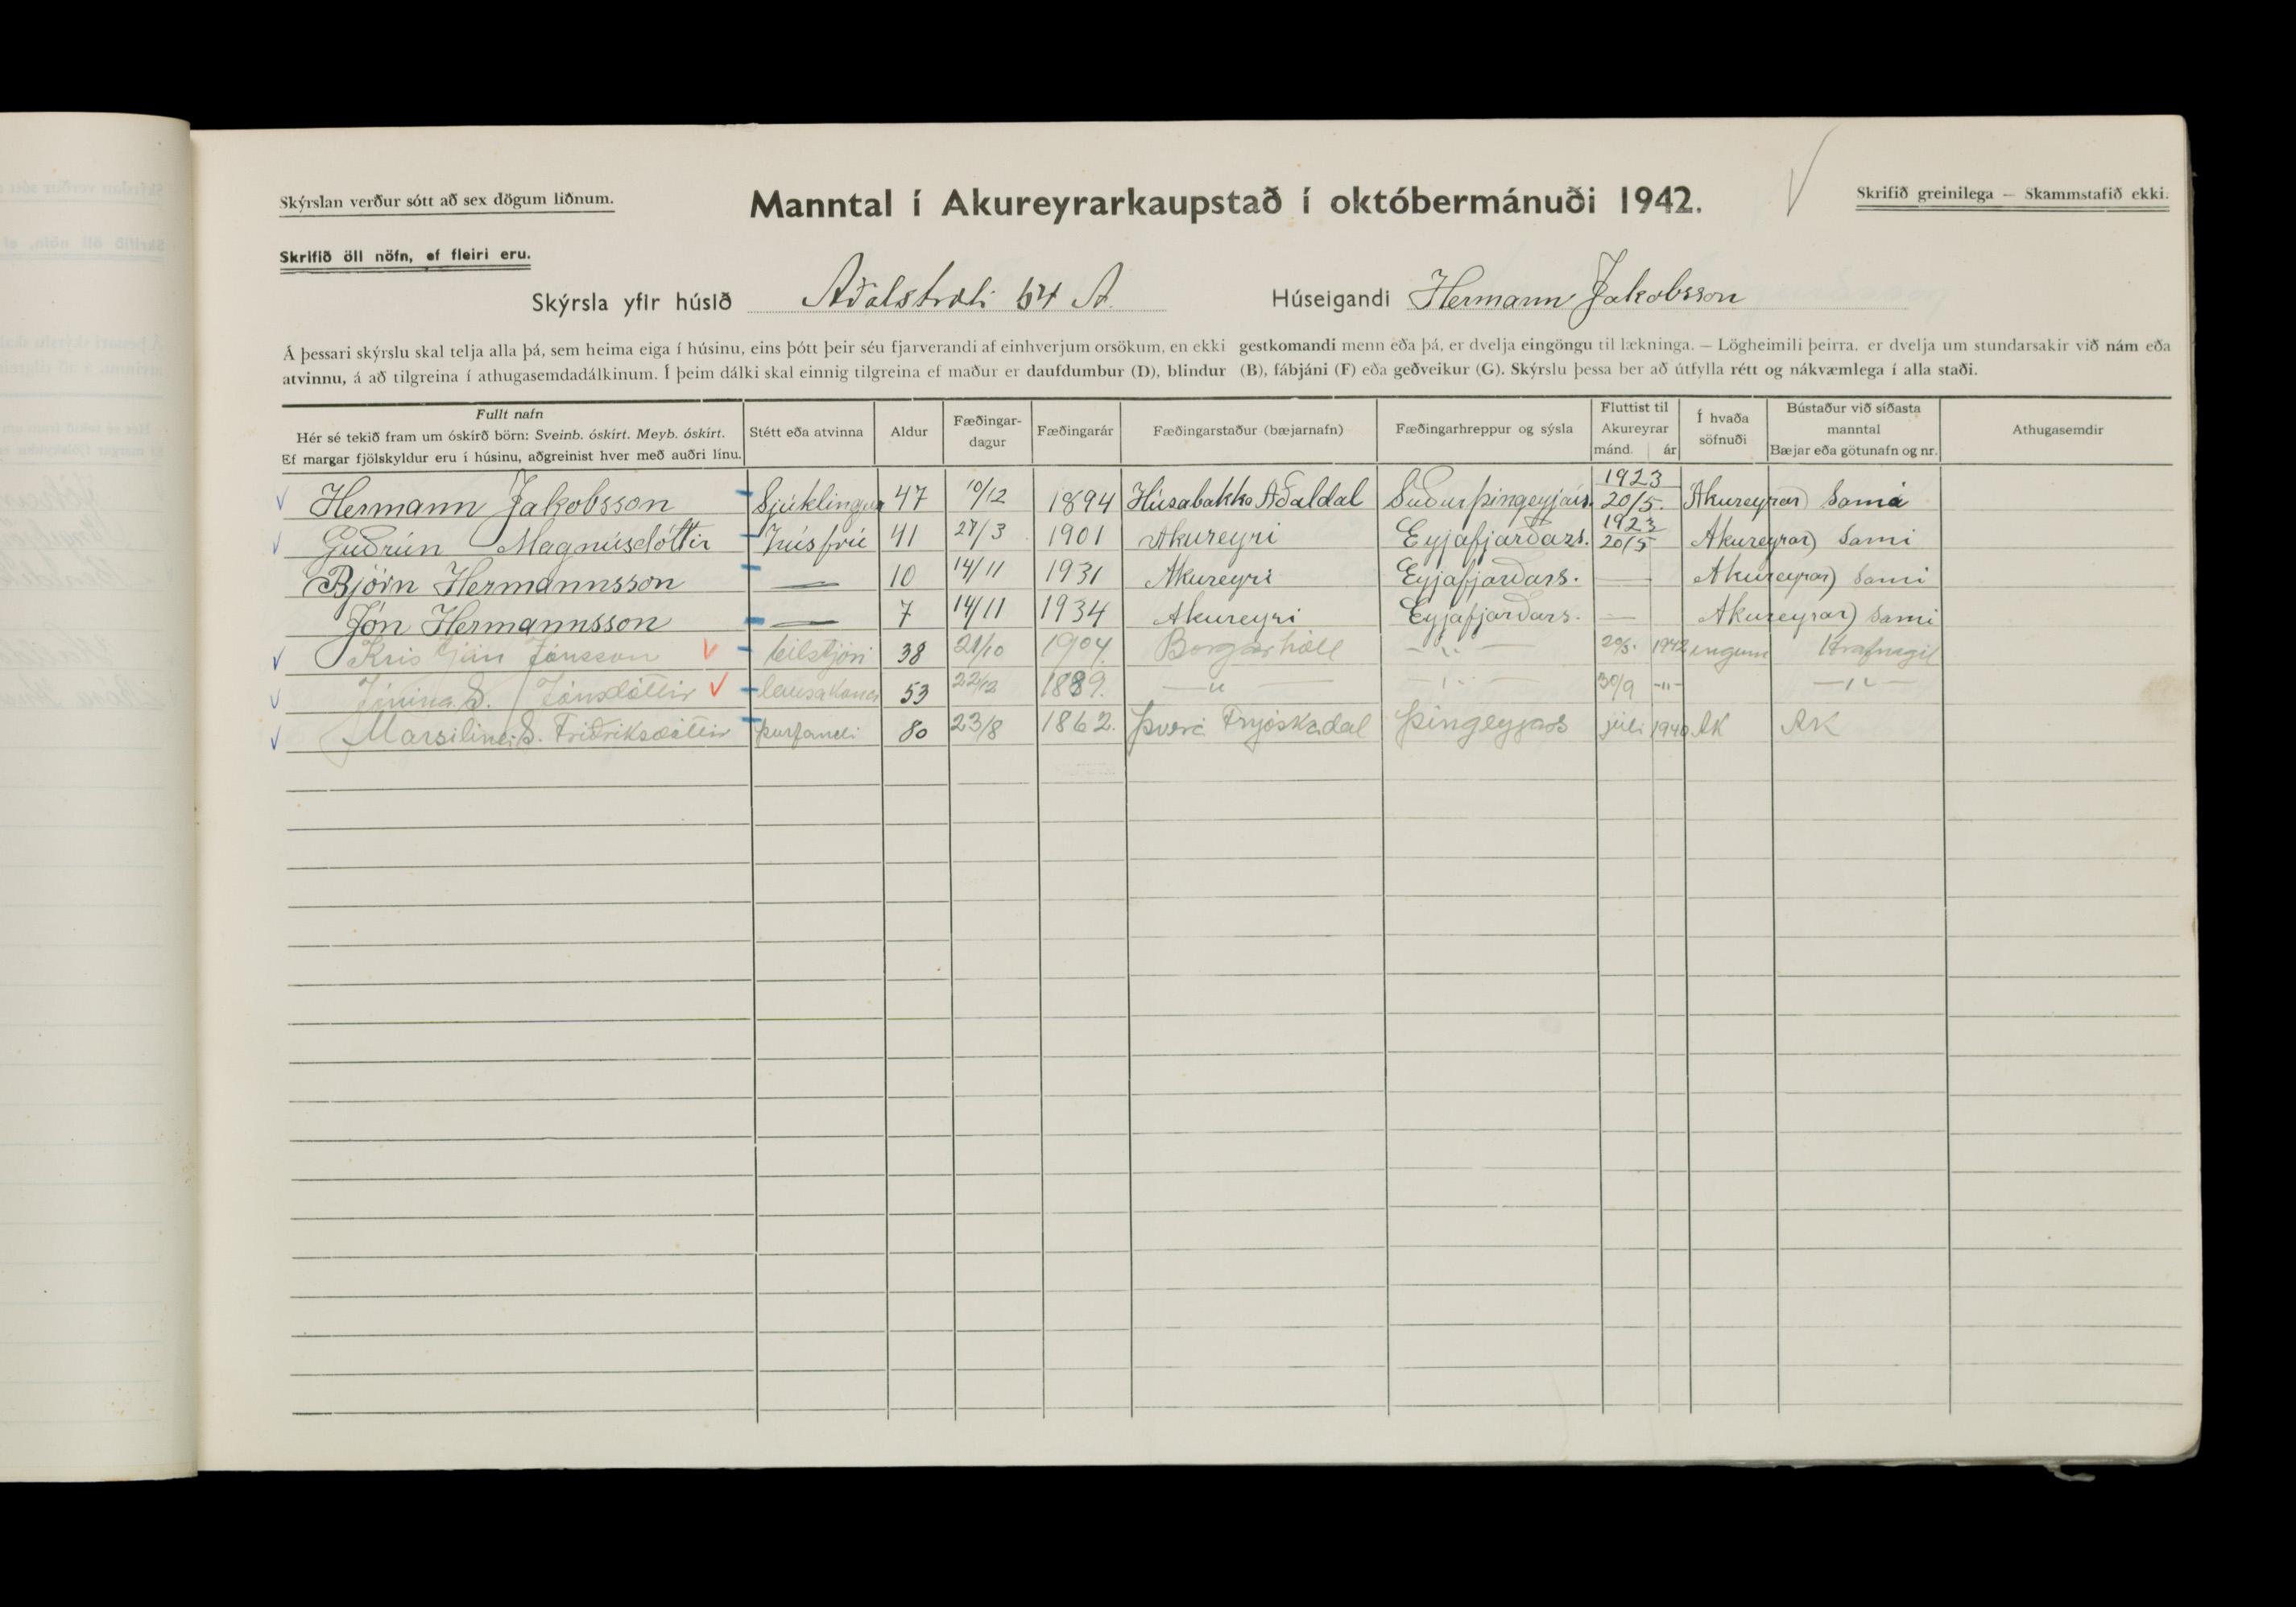 Skýrslan verður sótt að sex dögum liðnum.
Manntal í Akureyrarkaupstað í októbermánuði 1942.
Skrifið greinilega — Skammstafið ekki.
Skrifið öll nöfn, ef fleiri eru.
Skýrsla yfir húsið Aðalstræti 54 A. Húseigandi Hermann Jakobsson
Á þessari skýrslu skal telja alla þá, sem heima eiga í húsinu, eins þótt þeir séu fjarverandi af einhverjum orsökum, en ekki gestkomandi menn eða þá, er dvelja eingöngu til lækninga. — Lögheimili þeirra, er dvelja um stundarsakir við nám eða
atvinnu, á að tilgreina í athugasemdadálkinum. Í þeim dálki skal einnig tilgreina ef maður er daufdumbur (D), blindur (B), fábjáni (F) eða geðveikur (G). Skýrslu þessa ber að útfylla rétt og nákvæmlega í alla staði.
Fullt nafn
Hér sé tekið fram um óskírð börn: Sveinb. óskírt. Meyb. óskírt.
Ef margar fjölskyldur eru í húsinu, aðgreinist hver með auðri línu.
Stétt eða atvinna
Aldur
Fæðingar-
dagur
Fæðingarár
Fæðingarstaður (bæjarnafn)
Fæðingarhreppur og sýsla
Fluttist til
Akureyrar
mánd. ár
Í hvaða
söfnuði
Bústaður við síðasta
manntal
Bæjar eða götunafn og nr.
Athugasemdir
Hermann Jakobsson Sjúklingur 47 10/12 1894 Húsabakka Aðaldal Suðurþingeyjars. 1923 20/5. Akureyrar) Sama
Guðrún Magnúsdóttir húsfrú 41 27/3 1901 Akureyri Eyjafjarðars. 1923 20/5 Akureyrar) Sami
Björn Hermannsson — 10 14/11 1931 Akureyri Eyjafjarðars. — Akureyrar) Sami
Jón Hermannsson — 7 14/11 1934 Akureyri Eyjafjarðars. — Akureyrar) Sami
Kristján Jónsson bílstjóri 38 21/10 1904. Borgarhóll —"— 20/5. 1942 engum Hrafnagil
Jónína S. Jónsdóttir lausakona 53 22/12 1889. —"— —"— 30/9 —"— —"—
Marsilina S. Friðriksdóttir þurfandi 80 23/8 1862. Þverá Fnjóskadal Þingeyjars júlí 1940 AK AK